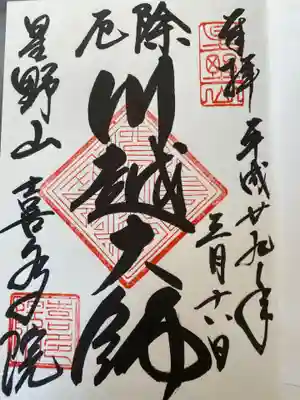 奉拝 平成廿九年
三月十八日
厄除
川越大師
星野山 喜多院